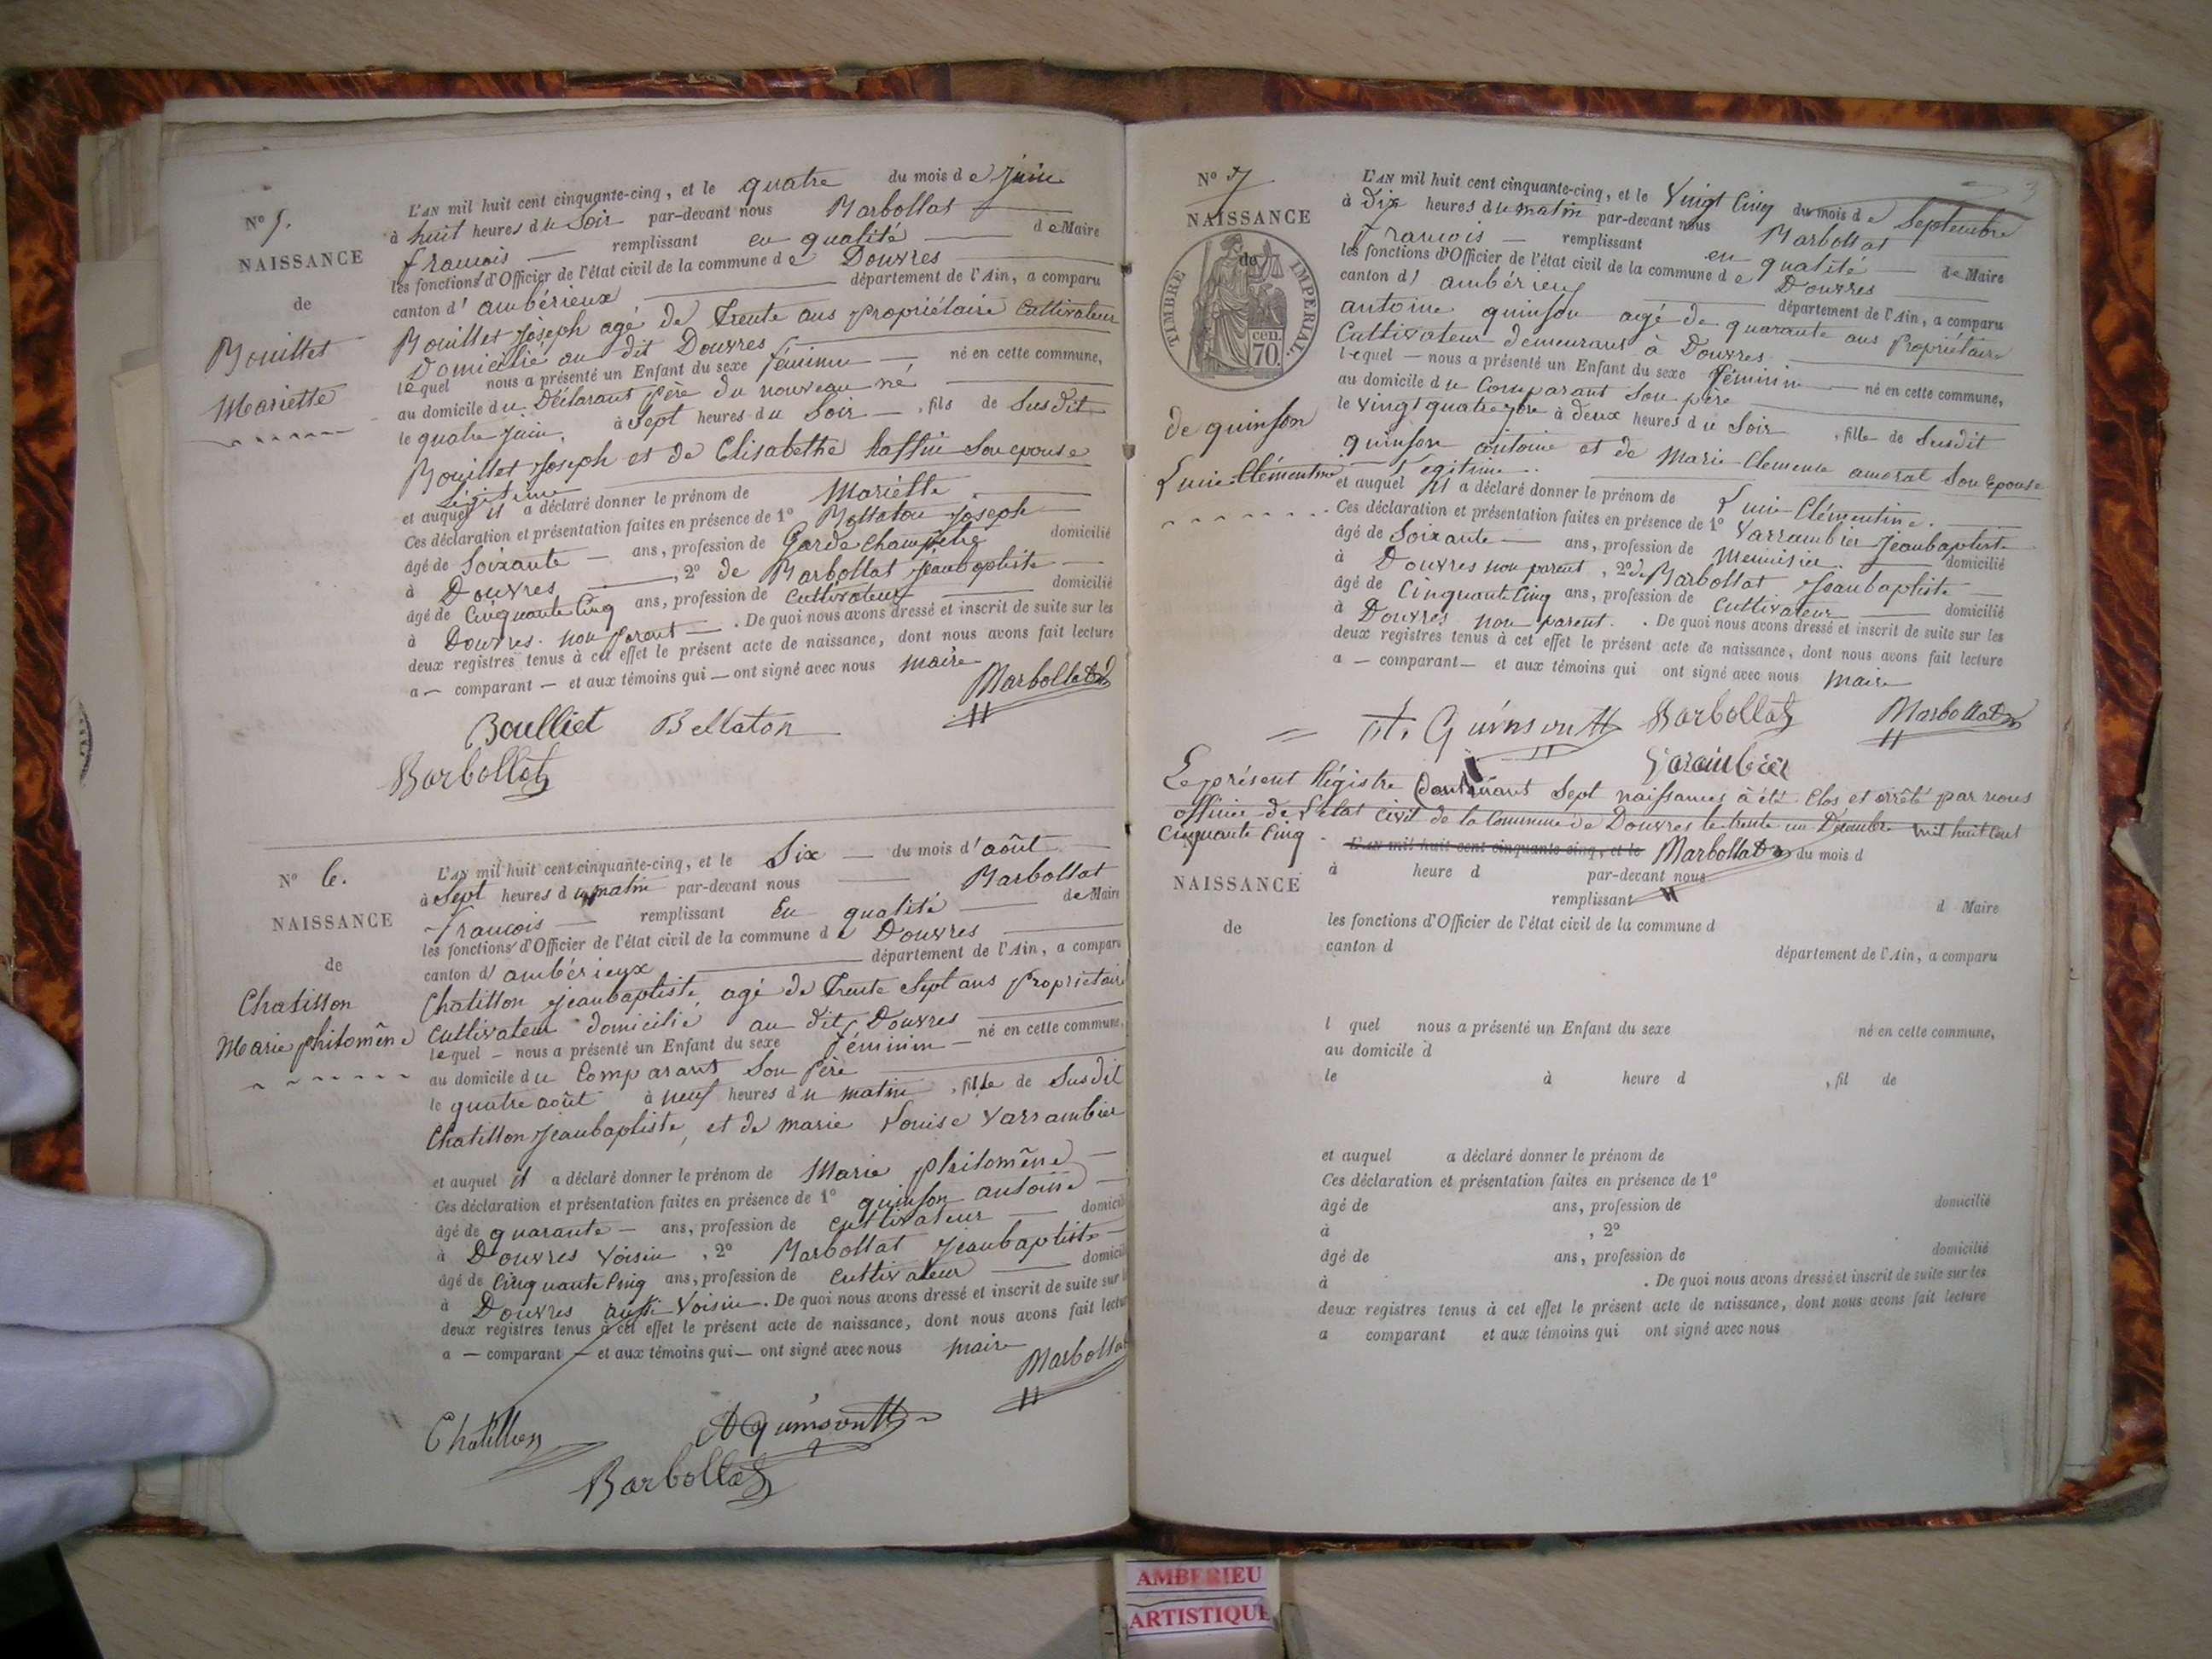 N° 5.
NAISSANCE
de
Bouillet
Mariette
L'AN mil huit cent cinquante-cinq, et le quatre du mois de Juin
à huit heures du Soir par-devant nous Barbollat
francois remplissant en qualité de Maire
les fonctions d'Officier de l'état civil de la commune de Douvres
canton d'ambérieux département de l'Ain, a comparu
Bouillet Joseph agé de Trente ans propriétaire Cultivateur
Domicilié au dit Douvres
lequel nous a présenté un Enfant du sexe féminin né en cette commune,
au domicile du Déclarant père du nouveau né
le quatre juin, à Sept heures du Soir, fils de Susdit
Bouillet Joseph et de Elisabethe Raffin Son epouse
Légitime
et auquel il a déclaré donner le prénom de Mariette
Ces déclaration et présentation faites en présence de 1° Bellaton Joseph
âgé de Soixante ans, profession de Garde Champêtre domicilié
à Douvres, 2° de Barbollat Jeanbaptiste
âgé de Cinquante Cinq ans, profession de Cultivateur domicilié
à Douvres. non parent. De quoi nous avons dressé et inscrit de suite sur les
deux registres tenus à cet effet le présent acte de naissance, dont nous avons fait lecture
a — comparant — et aux témoins qui — ont signé avec nous maire
Barbollat
Boulliet Bellaton
Barbollat
N° 6.
NAISSANCE
de
Chatillon
Marie philomène
L'AN mil huit cent cinquante-cinq, et le Six du mois d'août
à Sept heures du matin par-devant nous Barbollat
francois remplissant En qualité de Maire
les fonctions d'Officier de l'état civil de la commune de Douvres
canton d'ambérieux département de l'Ain, a comparu
Chatillon Jeanbaptiste agé de Trente Sept ans propriétaire
Cultivateur domicilié au dit Douvres
lequel — nous a présenté un Enfant du sexe féminin — né en cette commune,
au domicile du Comparant Son père
le quatre août à neuf heures du matin, fille de Susdit
Chatillon Jeanbaptiste, et de marie Louise Varrambier
et auquel il a déclaré donner le prénom de Marie philomène
Ces déclaration et présentation faites en présence de 1° quinson antoine
âgé de quarante ans, profession de cultivateur
à Douvres Voisin, 2° Barbollat Jeanbaptiste
âgé de Cinquante Cinq ans, profession de Cultivateur
à Douvres aussi Voisin. De quoi nous avons dressé et inscrit de suite sur
deux registres tenus à cet effet le présent acte de naissance, dont nous avons fait
a — comparant — et aux témoins qui — ont signé avec nous maire
Barbollat
Chatillon
Barbollat
N° 7
NAISSANCE
de
TIMBRE IMPERIAL.
CEN. 70.
de quinson
Clémentine
L'AN mil huit cent cinquante-cinq, et le Vingt Cinq du mois de Septembre
à dix heures du matin par-devant nous Barbollat
francois — remplissant en qualité de Maire
les fonctions d'Officier de l'état civil de la commune de Douvres
canton d'ambérieux département de l'Ain, a comparu
antoine quinson agé de quarante ans Propriétaire
Cultivateur demeurant à Douvres
lequel — nous a présenté un Enfant du sexe féminin — né en cette commune,
au domicile du Comparant Son père
le vingt quatre 7bre à deux heures du Soir, fille de Susdit
quinson antoine et de Marie Clemence amoral Son Epouse
Légitime
et auquel il a déclaré donner le prénom de Clémentine.
Ces déclaration et présentation faites en présence de 1° Varrambier Jeanbaptiste
âgé de Soixante ans, profession de Menuisier. domicilié
à Douvres non parent, 2° de Barbollat Jeanbaptiste
âgé de Cinquante Cinq ans, profession de Cultivateur domicilié
à Douvres non parent. De quoi nous avons dressé et inscrit de suite sur les
deux registres tenus à cet effet le présent acte de naissance, dont nous avons fait lecture
a — comparant — et aux témoins qui ont signé avec nous maire
Barbollat Barbollat
Le présent Régistre Contenant Sept naissances à été Clos et arrêté par nous
officier de l'état civil de la Commune de Douvres le trente un Décembre mil huit cent
Cinquante Cinq.
L'AN mil huit cent cinquante-cinq, et le Barbollat du mois d
NAISSANCE
de
à heure d par-devant nous
remplissant
d Maire
les fonctions d'Officier de l'état civil de la commune d
canton d département de l'Ain, a comparu
l quel nous a présenté un Enfant du sexe né en cette commune,
au domicile d
le à heure d , fil de
et auquel a déclaré donner le prénom de
Ces déclaration et présentation faites en présence de 1°
âgé de ans, profession de domicilié
à , 2°
âgé de ans, profession de domicilié
à . De quoi nous avons dressé et inscrit de suite sur les
deux registres tenus à cet effet le présent acte de naissance, dont nous avons fait lecture
a comparant et aux témoins qui ont signé avec nous
AMBERIEU
ARTISTIQUE